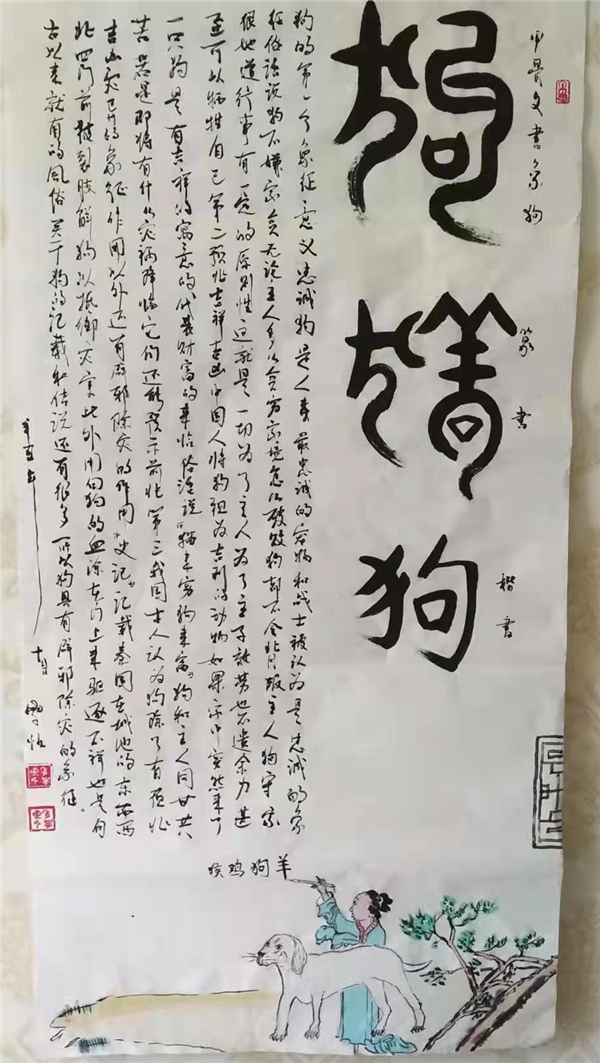 甲骨文书象狗
狗
篆书
狗
楷书
狗
狗的第一个象征意义忠诚狗是人类最忠诚的宠物和战士被认为是忠诚的象
征俗话说狗不嫌家贫无论主人多么贫穷家境怎么破败狗都不会背叛主人狗守家
狠他道行事有一定的原则性这就是一切为了主人为了主子效劳也不遗余力甚
至可以牺牲自己第二预兆吉祥吉凶中国人将狗视为吉利的动物如果家中突然来了
一只为是有吉祥的寓意的代表财富的来临俗话说“猫来穷狗来富”狗和主人同甘共
苦若是即将有什么灾祸降临它们还能发示前兆第三我国古人认为狗除了有预兆
吉凶灾己的象征作用以外还有辟邪除灾的作用《史记》记载秦国在城池的东南西
北四门前被裂肢解狗以抵御灾害此外用白狗的血涂在门上来驱逐不祥也是自
古以来就有的风俗关于狗的记载和传说还有很多所以狗具有辟邪除灾的象征。
辛丑年
猴鸡狗羊